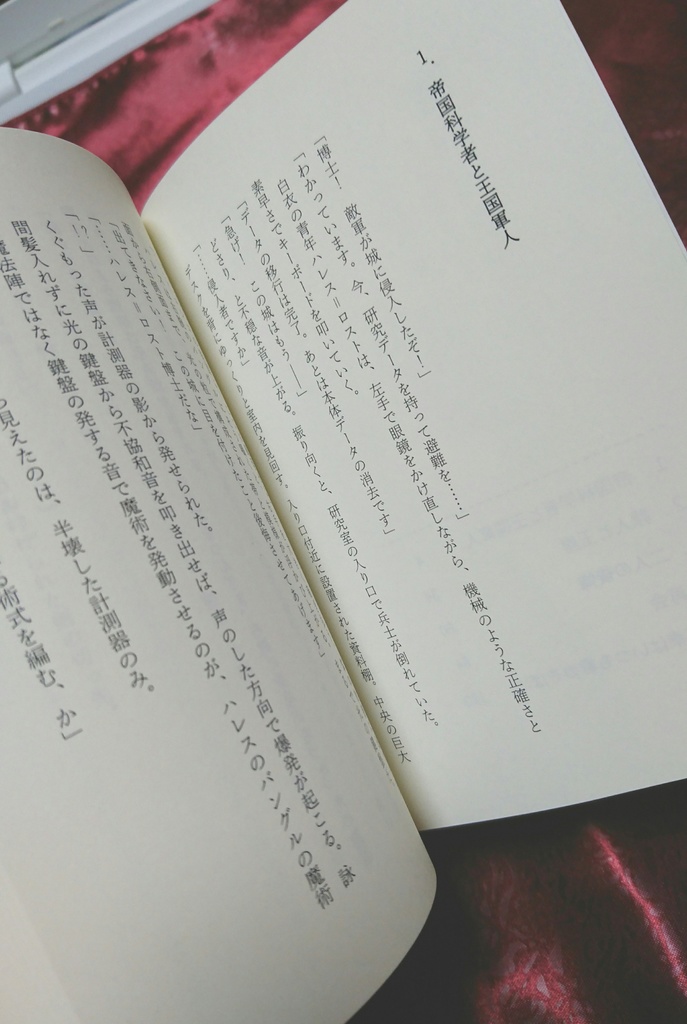 1. 帝国科学者と王国軍人
「博士！　敵軍が城に侵入したぞ！」
「わかっています。今、研究データを持って避難を……」
白衣の青年ハレス＝ロストは、左手で眼鏡をかけ直しながら、機械のような正確さと
素早さでキーボードを叩いていく。
「データの移行は完了。あとは本体データの消去です」
「急げ！　この城はもう――」
どさり、と不穏な音が上がる。振り向くと、研究室の入り口で兵士が倒れていた。
「……侵入者ですか」
デスクを背にゆっくりと室内を見回す。入り口付近に設置された資料棚。中央の巨大
「出てきなさい！　この城に目を付けたこと後悔させてあげます」
「……ハレス＝ロスト博士だな」
「！？」
くぐもった声が計測器の影から発せられた。
間髪入れずに光の鍵盤から不協和音を叩き出せば、声のした方向で爆発が起こる。詠
魔法陣ではなく鍵盤の発する音で魔術を発動させるのが、ハレスのバングルの魔術
見えたのは、半壊した計測器のみ。
術式を編む、か」